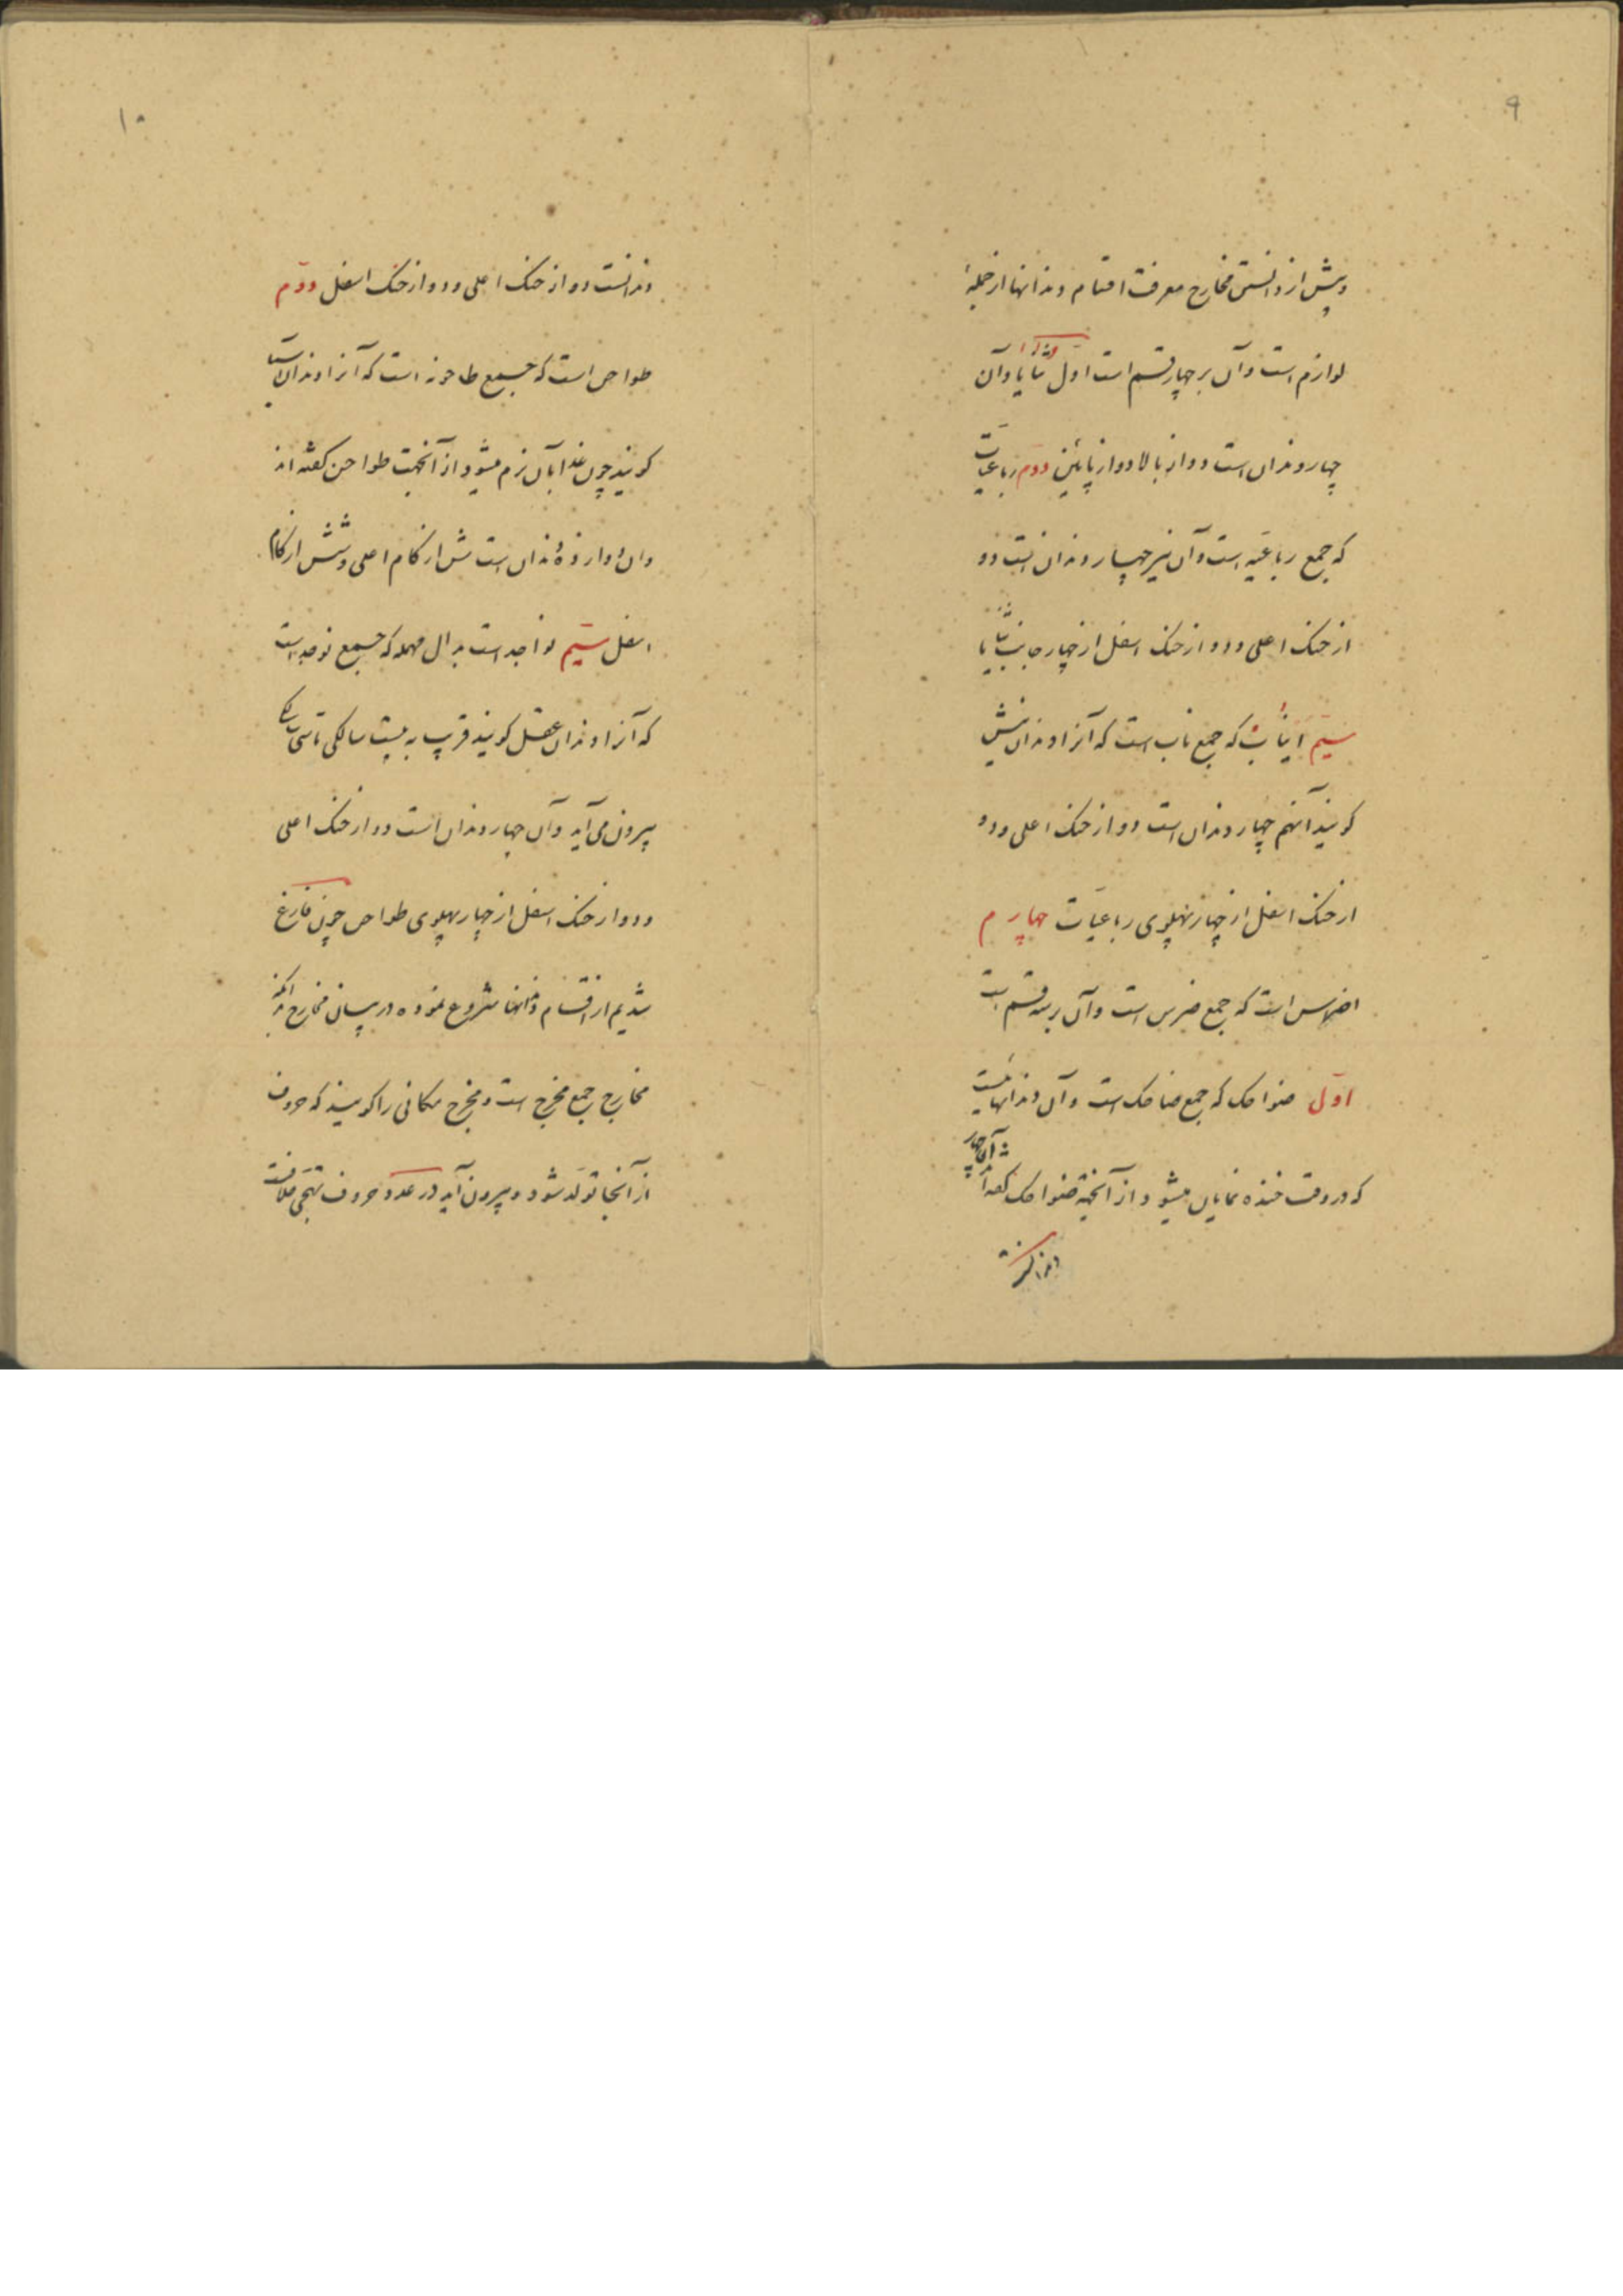 ۹
و پیش از دانستن مخارج معرفت اقسام دندانها از جملهٔ
لوازم است و آن بر چهار قسم است اوّل ثنایا و آن
چهار دندان است دو از بالا و دو از پائین دوّم رباعیات
که جمع رباعیه است و آن نیز چهار دندانست دو
از حنک اعلی و دو از حنک اسفل از چهار جانب ثنایا
سیّم انیاب که جمع ناب است که آنرا دندان نیش
کویند آنهم چهار دندان است دو از حنک اعلی و دو
از حنک اسفل از چهار پهلوی رباعیات چهارم
اضراس است که جمع ضرس است و آن بر سه قسم است
اوّل ضواحک که جمع ضاحک است و آن دندانهائیست
که در وقت خنده نمایان میشود از آنجهة ضواحک کفته‌اند
و آن چهار
دندانست
۱۰
دندانست دو از حنک اعلی و دو از حنک اسفل دوّم
طواحن است که جمع طاحونه است که آنرا دندان آسیا
کویند چون غذا بآن نرم میشود از آنجهت طواحن کفته‌اند
و آن دوازده دندان است شش از کام اعلی و شش از کام
اسفل سیّم نواجد است بدال مهمله که جمع نوجد است
که آنرا دندان عقل کویند قریب به بیست سالکی تا سی سالکی
بیرون می‌آید و آن چهار دندان است دو از حنک اعلی
و دو از حنک اسفل از چهار پهلوی طواحن چون فارغ
شدیم از اقسام دندانها شروع نموده در بیان مخارج بدانکه
مخارج جمع مخرج است و مخرج مکانی را کویند که حروف
از آنجا تولّد شود و بیرون آید در عدد حروف تهجّی خلافست